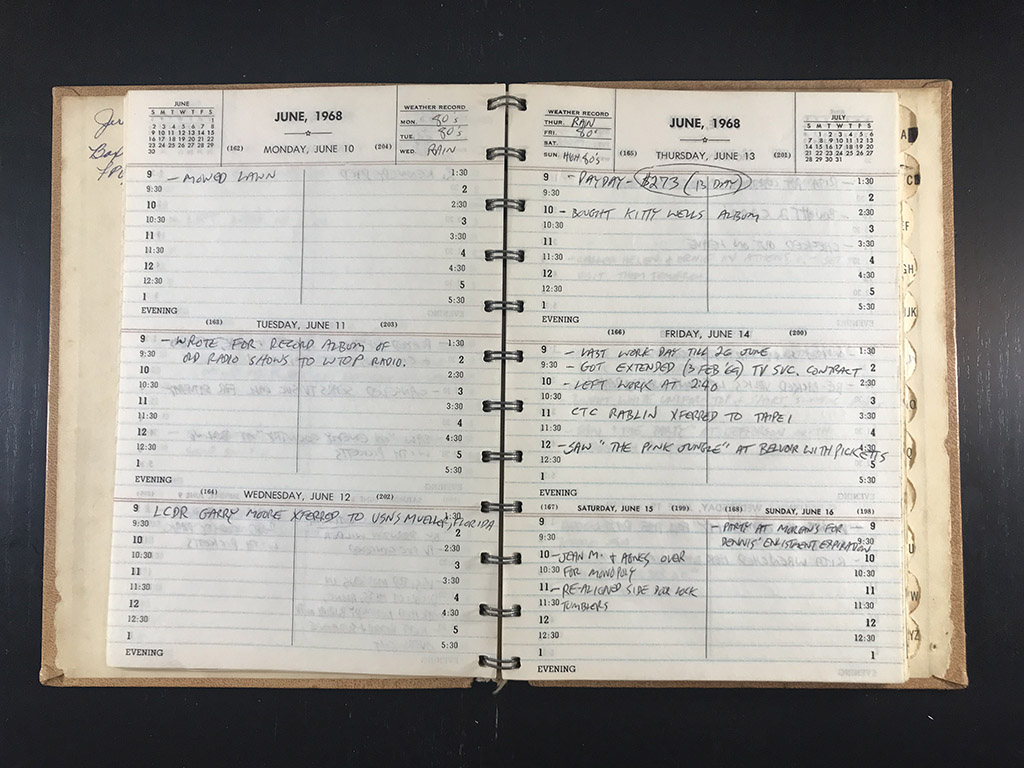 JUNE
S M T W T F S
1
2 3 4 5 6 7 8
9 10 11 12 13 14 15
16 17 18 19 20 21 22
23 24 25 26 27 28 29
30
JUNE, 1968
WEATHER RECORD
MON. 80's
TUE. 80's
WED. RAIN
(162) MONDAY, JUNE 10 (204)
9 - MOWED LAWN 1:30
9:30 2
10 2:30
10:30 3
11 3:30
11:30 4
12 4:30
12:30 5
1 5:30
EVENING
(163) TUESDAY, JUNE 11 (203)
9 - WROTE FOR RECORD ALBUM OF 1:30
9:30 OLD RADIO SHOWS TO WTOP RADIO. 2
10 2:30
10:30 3
11 3:30
11:30 4
12 4:30
12:30 5
1 5:30
EVENING
(164) WEDNESDAY, JUNE 12 (202)
9 LCDR GARRY MOORE XFERRED TO USNS MUELLER, FLORIDA 1:30
9:30 2
10 2:30
10:30 3
11 3:30
11:30 4
12 4:30
12:30 5
1 5:30
EVENING
WEATHER RECORD
THUR. RAIN
FRI. 80's
SAT.
SUN. HIGH 80's
JUNE, 1968
JULY
S M T W T F S
1 2 3 4 5 6
7 8 9 10 11 12 13
14 15 16 17 18 19 20
21 22 23 24 25 26 27
28 29 30 31
(165) THURSDAY, JUNE 13 (201)
9 - PAYDAY - $273 (13 DAY) 1:30
9:30 2
10 - BOUGHT KITTY WELLS ALBUM 2:30
10:30 3
11 3:30
11:30 4
12 4:30
12:30 5
1 5:30
EVENING
(166) FRIDAY, JUNE 14 (200)
9 - LAST WORK DAY TILL 26 JUNE 1:30
9:30 - GOT EXTENDED (3 FEB '69) TV SVC. CONTRACT 2
10 - LEFT WORK AT 2:40 2:30
10:30 3
11 CTC RABLIN XFERRED TO TAIPEI 3:30
11:30 4
12 - SAW "THE PINK JUNGLE" AT BELVOIR WITH PICKETTS 4:30
12:30 5
1 5:30
EVENING
(167) SATURDAY, JUNE 15 (199)
9
9:30
10 - JEAN M. + AGNES OVER
10:30 FOR MONOPOLY
11 - RE-ALIGNED SIDE DOOR LOCK
11:30 TUMBLERS
12
12:30
1
EVENING
(168) SUNDAY, JUNE 16 (198)
- PARTY AT MORGAN'S FOR 9
DENNIS' ENLISTMENT EXPIRATION 9:30
10
10:30
11
11:30
12
12:30
1
A
C
EF
GH
IJK
O
Q
U
W
YZ